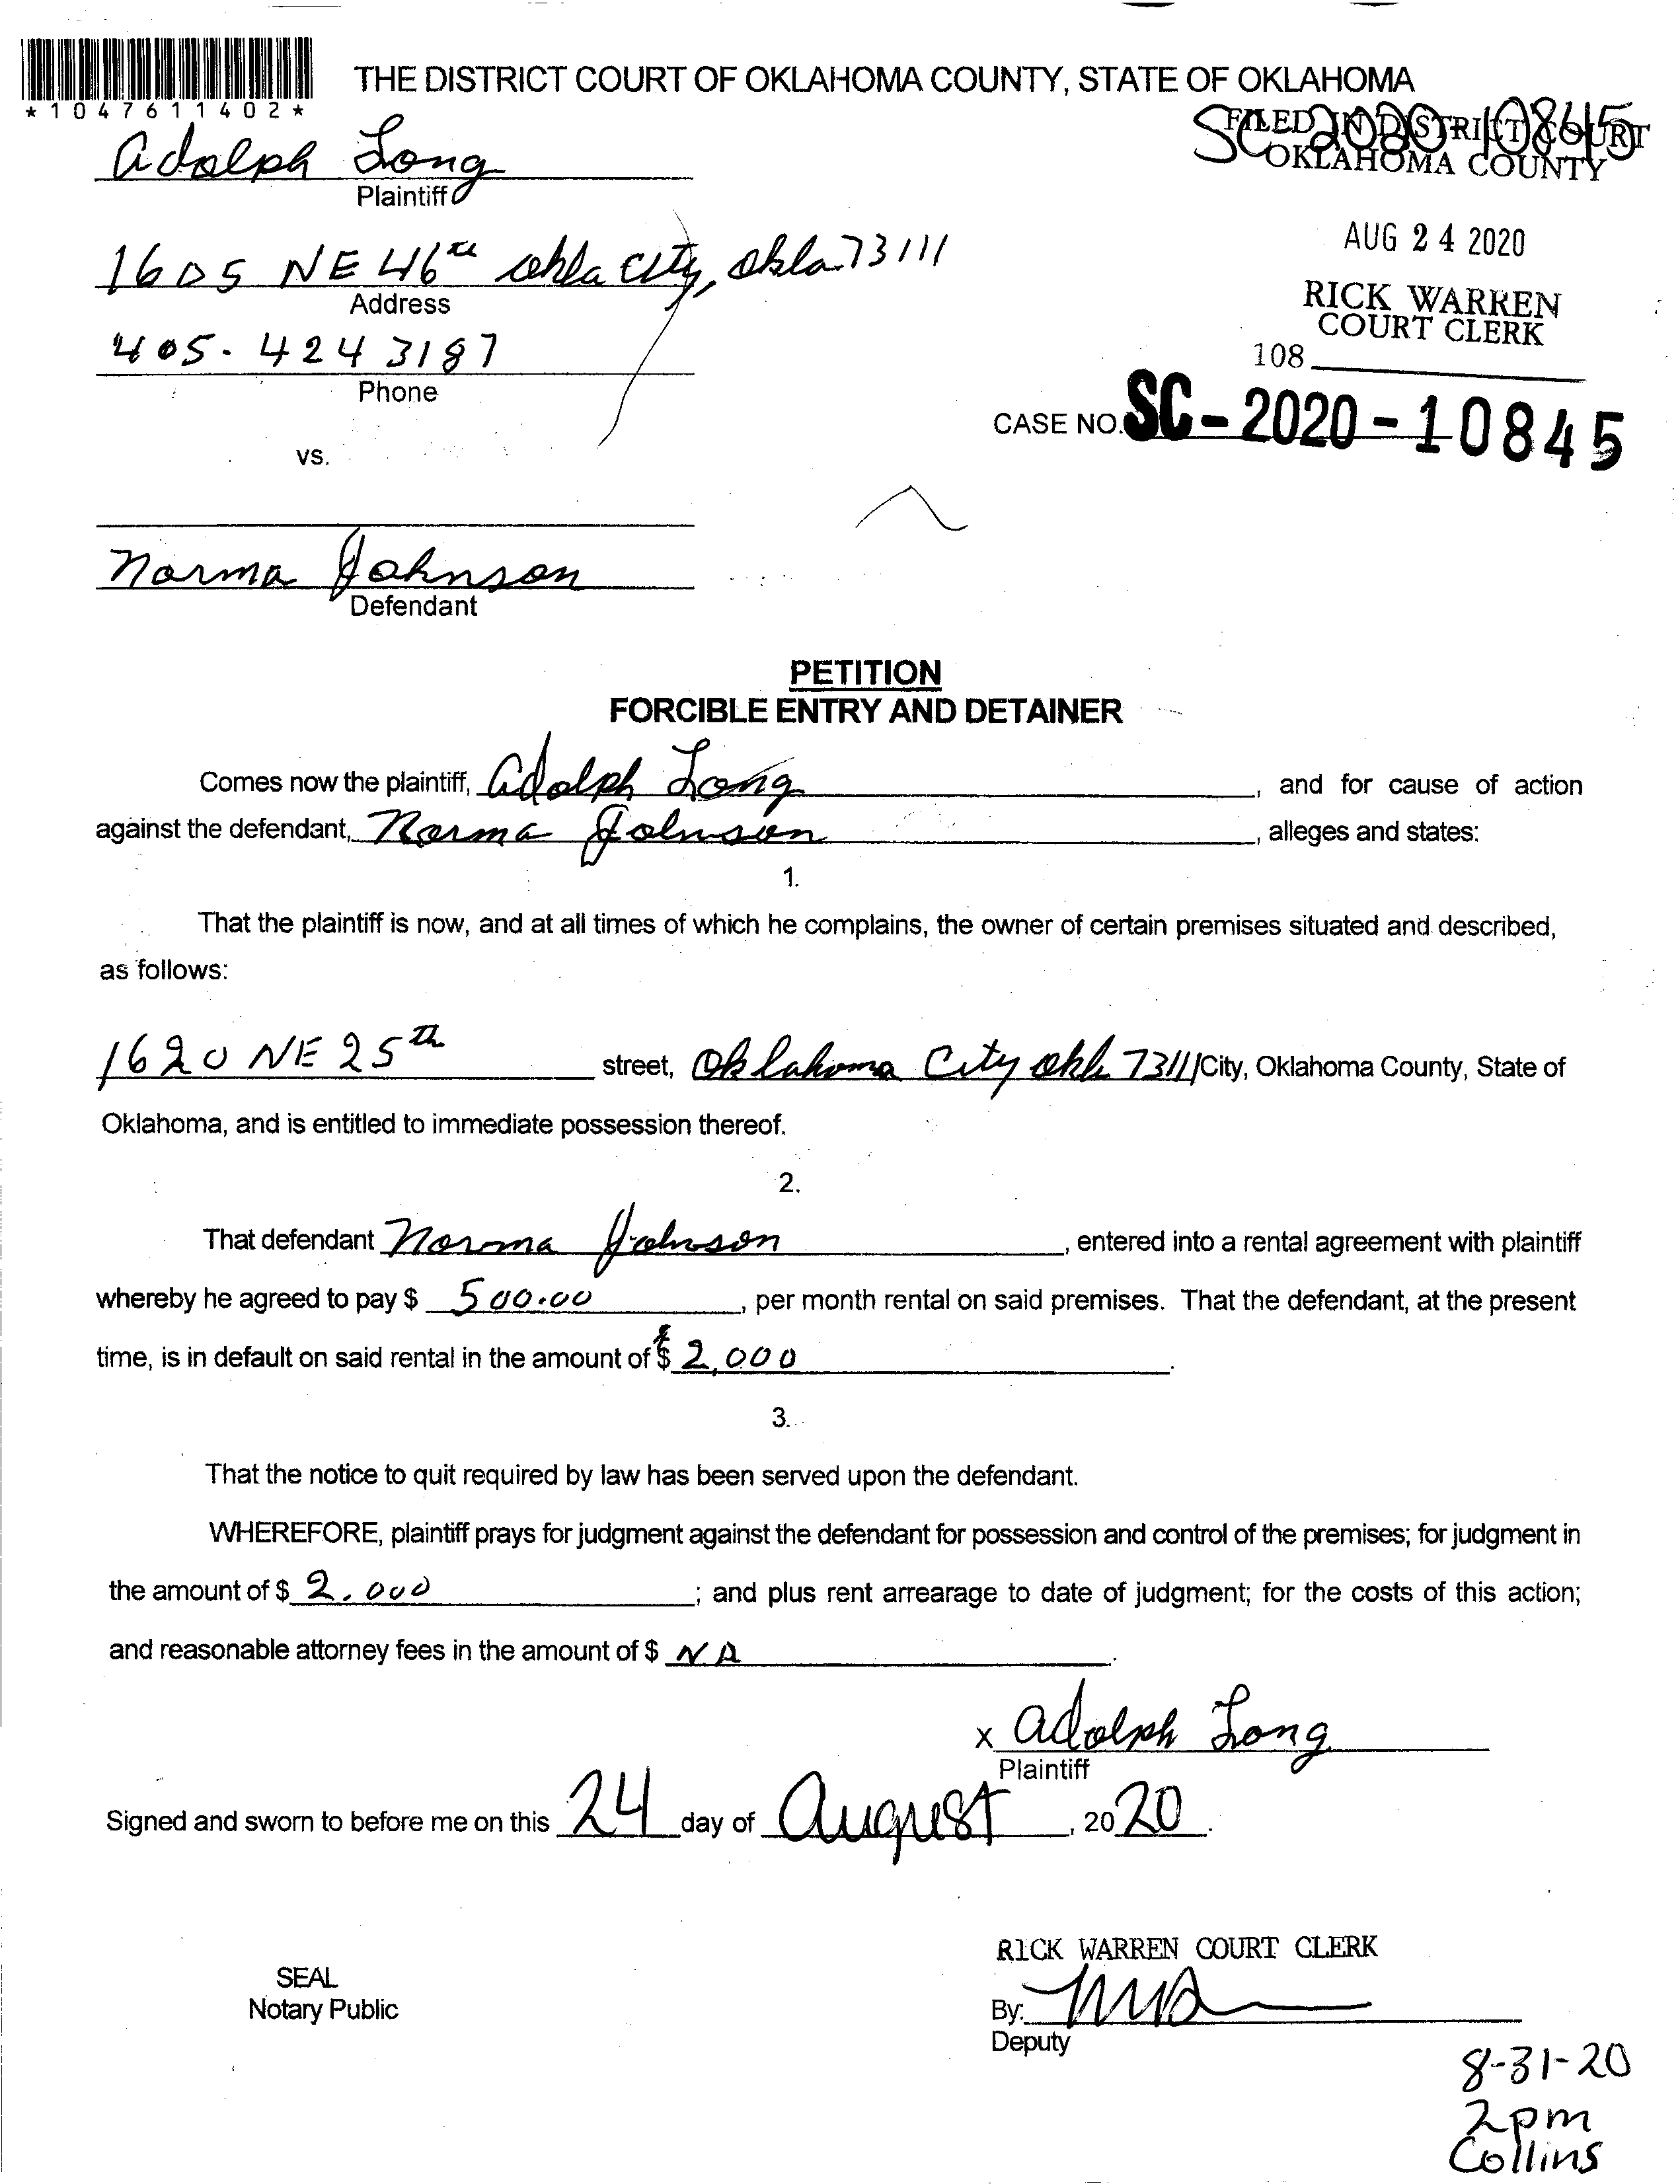 *1047611402*
THE DISTRICT COURT OF OKLAHOMA COUNTY, STATE OF OKLAHOMA
SC 2020 10845
FILED IN DISTRICT COURT
OKLAHOMA COUNTY
Adolph Long
Plaintiff
AUG 24 2020
1605 NE 46th Okla City, Okla. 73111
Address
RICK WARREN
COURT CLERK
405-424 3187
Phone
108
CASE NO. SC-2020-10845
vs.
Norma Johnson
Defendant
PETITION
FORCIBLE ENTRY AND DETAINER
Comes now the plaintiff, Adolph Long, and for cause of action
against the defendant, Norma Johnson, alleges and states:
1.
That the plaintiff is now, and at all times of which he complains, the owner of certain premises situated and described,
as follows:
1620 NE 25th street, Oklahoma City Okla 73111 City, Oklahoma County, State of
Oklahoma, and is entitled to immediate possession thereof.
2.
That defendant Norma Johnson, entered into a rental agreement with plaintiff
whereby he agreed to pay $ 500.00, per month rental on said premises. That the defendant, at the present
time, is in default on said rental in the amount of $ 2,000.
3.
That the notice to quit required by law has been served upon the defendant.
WHEREFORE, plaintiff prays for judgment against the defendant for possession and control of the premises; for judgment in
the amount of $ 2,000; and plus rent arrearage to date of judgment; for the costs of this action;
and reasonable attorney fees in the amount of $ NA.
x Adolph Long
Plaintiff
Signed and sworn to before me on this 24 day of August, 2020.
RICK WARREN COURT CLERK
SEAL
Notary Public
By:
Deputy
8-31-20
2pm
Collins